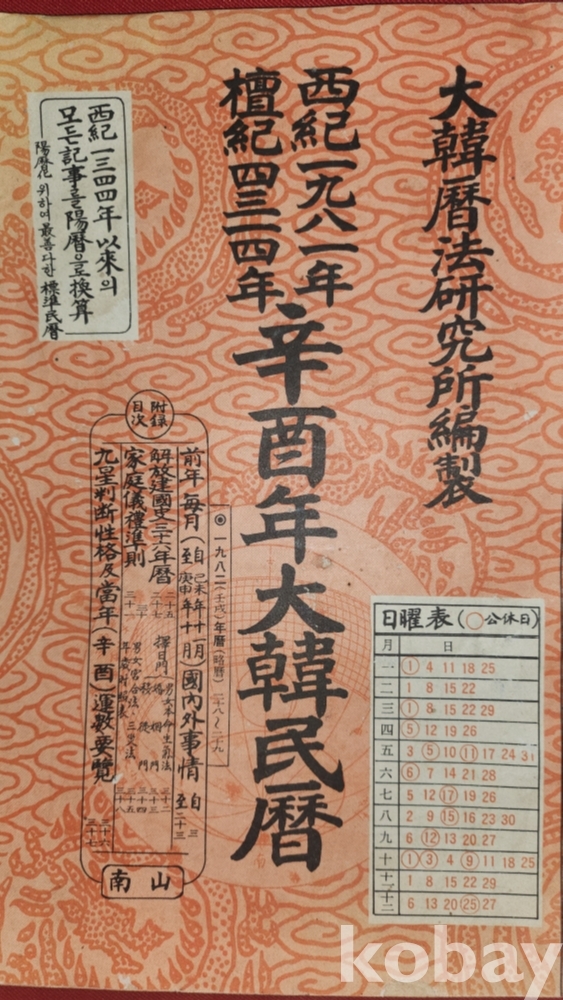 大韓曆法硏究所編製
西紀一九八一年
檀紀四三一四年
辛酉年大韓民曆
西紀一三四四年 以來의
모든記事를陽曆으로換算
陽曆化 위하여 最善다한 標準民曆
附錄
目次
前年 每月 (自 己未年十一月 至 庚申年十一月) 國內外事情 自 三 至 二十三
◉ 一九八二(壬戌)年曆(略曆) 二十八～二十九
解放建國史三十六年曆 二十五
家庭儀禮準則
九星判斷性格及當年(辛酉)運數要覽 三十六 三十七
擇日門
南山
日曜表(○公休日)
月 日
一 1 4 11 18 25
二 1 8 15 22
三 1 8 15 22 29
四 5 12 19 26
五 3 5 10 11 17 24 31
六 6 7 14 21 28
七 5 12 17 19 26
八 2 9 15 16 23 30
九 6 12 13 20 27
十 1 3 4 9 11 18 25
十一 1 8 15 22 29
十二 6 13 20 25 27
kobay